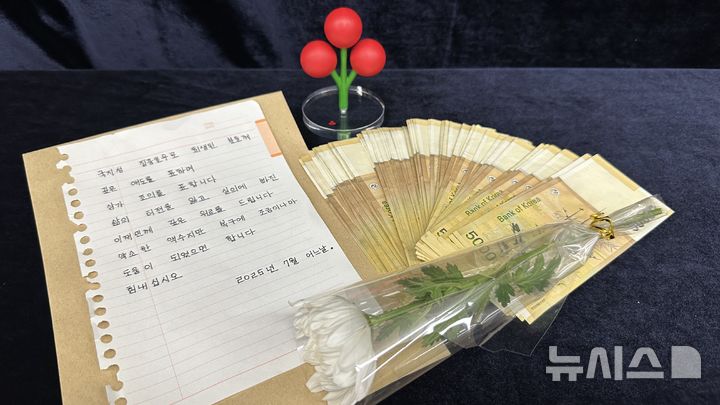 국지성 집중호우로 희생된 분들께
깊은 애도를 표하며
삼가 조의를 표합니다
삶의 터전을 잃고 실의에 빠진
이재민께 깊은 위로를 드립니다
약소한 액수지만 복구에 조금이나마
도움이 되었으면 합니다
힘내십시오 2025년 7월 어느날.
Bank of Korea
Bank of Korea
Bank of Korea
50
뉴시스